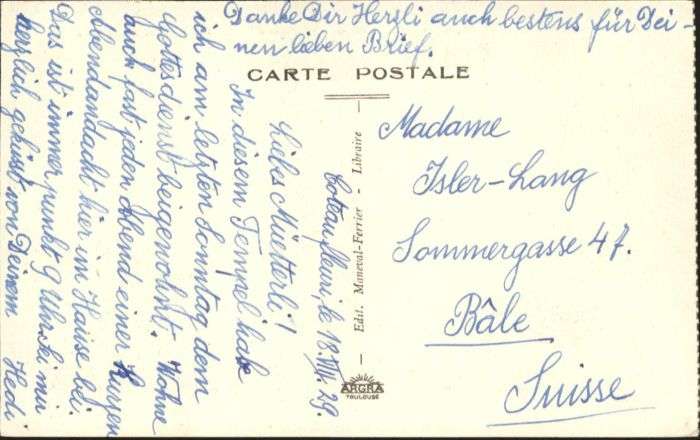 Danke Dir Herzli auch bestens für Dei-
nen lieben Brief.
CARTE POSTALE
Coteau fleuri, le 18. VII. 29.
Liebs Müetterli!
In diesem Tempel habe
ich am letzten Sonntag dem
Gottesdienst beigewohnt. Wohne
auch fast jeden Abend einer kurzen
Abendandacht hier im Hause bei.
Das ist immer punkt 9 Uhr. Sei nun
herzlich geküsst von Deinem Hedi.
Edit. Maneval-Ferrier - Libraire
ARGRA
TOULOUSE
Madame
Isler-Lang
Sommergasse 47.
Bâle
Suisse